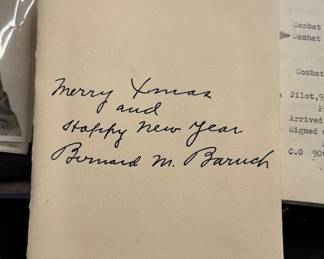 Merry Xmas
and
Happy New Year
Bernard M. Baruch
Combat
Combat
Combat
Pilot,9
Arrived
Signed
C.O 90